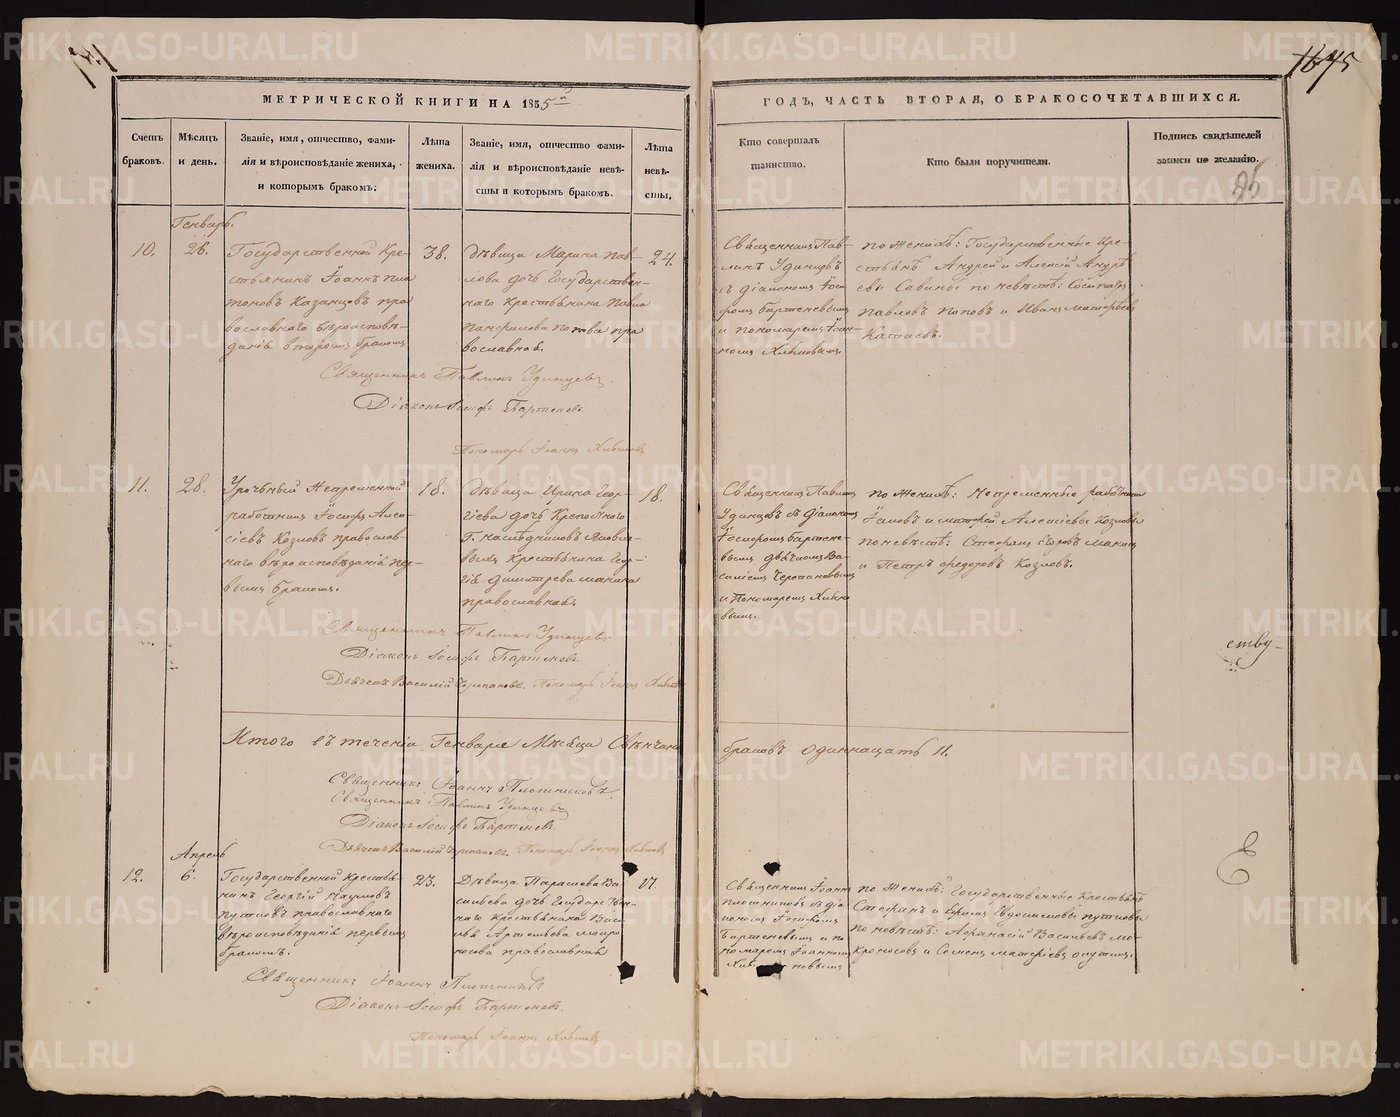 МЕТРИЧЕСКОЙ КНИГИ НА 1855
ГОДЪ, ЧАСТЬ ВТОРАЯ, О БРАКОСОЧЕТАВШИХСЯ.
Счетъ
браковъ.
Мѣсяцъ
и день.
Званіе, имя, отчество, фами-
лія и вѣроисповѣданіе жениха,
и которымъ бракомъ.
Лѣта
жениха.
Званіе, имя, отчество фами-
лія и вѣроисповѣданіе невѣ-
сты и которымъ бракомъ.
Лѣта
невѣ-
сты.
Кто совершалъ
таинство.
Кто были поручители.
Подпись свидѣтелей
записи по желанію.
Генварь.
10.
26.
Государственной Кре-
стьянинъ Іоаннъ Пла
тоновъ Казанцовъ пра
вославнаго вѣроисповѣ-
данія вторымъ бракомъ
38.
Дѣвица Марина Пав-
лова дочь Государствен-
наго Крестьянина Павла
Панфилова Попова пра
вославная.
24.
Священникъ Пав-
линъ Удинцовъ
съ діакономъ Іоси-
фомъ Бартеневымъ
и пономаремъ Іоан-
номъ Хлыновымъ
по женихѣ: Государственные Кре-
стьяне Андрей и Алексѣй Андрѣ-
евы Савины по невѣстѣ:
Павловъ Поповъ и Иванъ
Священникъ Павлинъ Удинцевъ
Діаконъ Іосифъ Бартеневъ
Пономарь Іоаннъ
11.
28.
Урочный Непременной
работникъ Іосифъ Алек-
сіевъ Козловъ православ-
наго вѣроисповѣданія пер-
вымъ бракомъ.
18.
Дѣвица Ирина Геор-
гіева дочь Крепостнаго
Г. наслѣдниковъ Яковле-
выхъ Крестьянина Геор-
гія Димитріева Макина
православная.
18.
Священникъ Павлинъ
Удинцовъ съ діакономъ
Іосифомъ Бартене-
вымъ дьячкомъ Ва-
силіемъ Черепановымъ
и пономаремъ Хлыно-
вымъ.
по женихѣ: Непременные работники
и Алексіевы Козловы
по невѣстѣ: Стефанъ Егоровъ Макинъ
и Петръ Федоровъ Козловъ.
Священникъ Павлинъ Удинцевъ.
Діаконъ Іосифъ Бартеневъ.
Дьячекъ Василій Черепановъ. Пономарь Іоаннъ
Итого въ теченіи Генваря Мѣсяца Свѣнчано
браковъ одиннацать 11.
Священникъ Іоаннъ Плотниковъ.
Священникъ Павлинъ Удинцевъ
Діаконъ Іосифъ Бартеневъ
Дьячекъ Василій Черепановъ. Пономарь Іоаннъ
Апрель
12.
6.
Государственной Крестья-
нинъ Георгій Наумовъ
Путиловъ православнаго
вѣроисповѣданія первымъ
бракомъ.
23.
Дѣвица Параскева Ва-
сильева дочь Государствен-
наго Крестьянина Васи-
лья Артемьева Мокро-
носова православная
17.
Священникъ Іоаннъ
Плотниковъ съ діа-
кономъ Іосифомъ
Бартеневымъ и по-
номаремъ Іоанномъ
по женихѣ: Государственные Крестьяне
Стефанъ и
по невѣстѣ: Афанасій Васильевъ Мо-
кроносовъ и Семенъ
Священникъ Іоаннъ Плотниковъ
Діаконъ Іосифъ Бартеневъ.
Пономарь Іоаннъ
METRIKI.GASO-URAL.RU